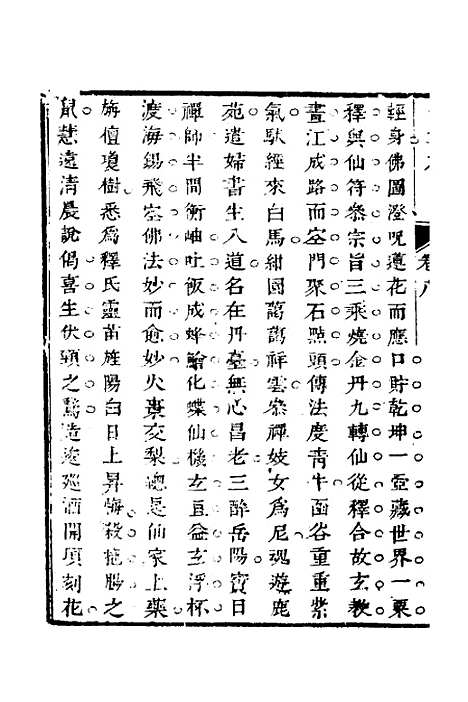 卷八
輕身佛圖澄呪蓮花而應口貯乾坤一壺藏世界一粟
釋與仙符叅宗旨三乘燒金丹九轉仙從釋合故玄教
畫江成路而空門聚石㸃頭傳法度靑牛函谷重重紫
氣馱經來白馬紺園藹藹祥雲叅禪妓女爲尼魂遊鹿
苑遣婦書生入道名在丹臺無心昌老三醉岳陽寳日
禪師半間衡岫吐飯成蜂鱠化蝶仙機玄且益玄浮杯
渡海錫飛空佛法妙而愈妙火棗交梨總是仙家上藥
旃檀瓊樹悉爲釋氏靈苗旌陽白日上昇悔殺拖腸之
鼠慧遠淸晨說偈喜生伏頸之鵞造逡廵酒開頃刻花